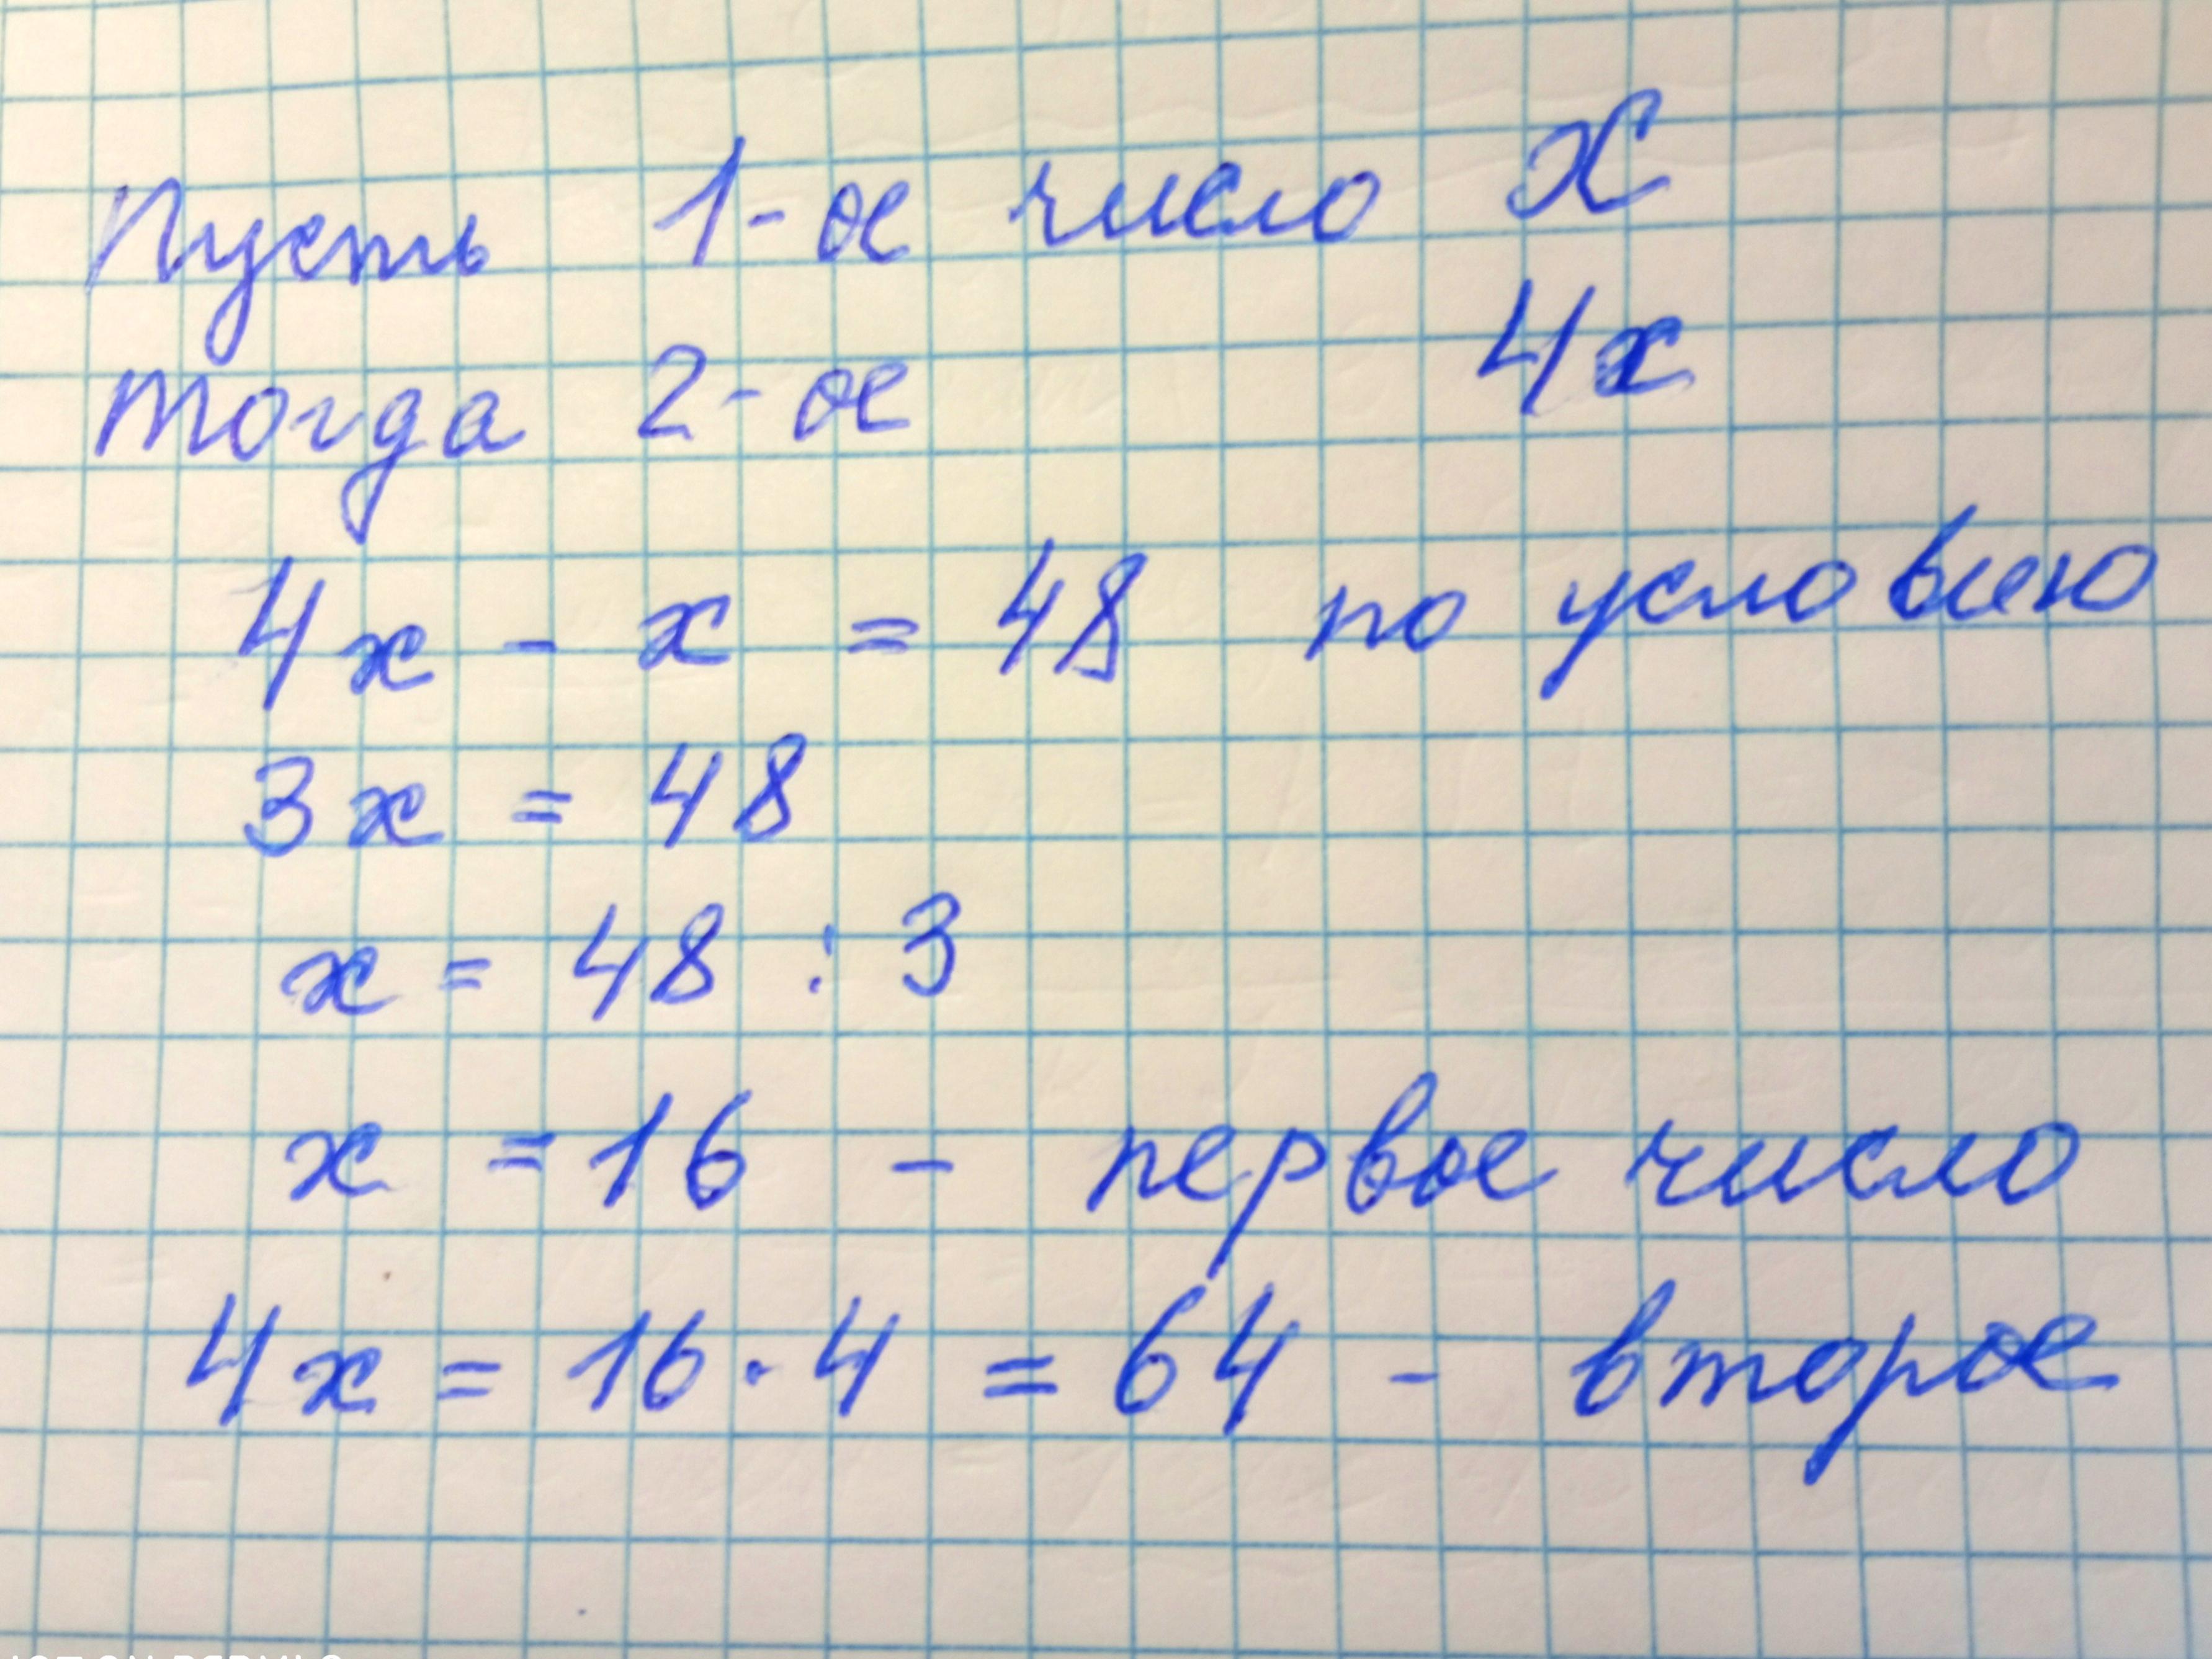 Пусть 1-ое число x
тогда 2-ое 4x
4x - x = 48 по условию
3x = 48
x = 48 : 3
x = 16 - первое число
4x = 16 · 4 = 64 - второе